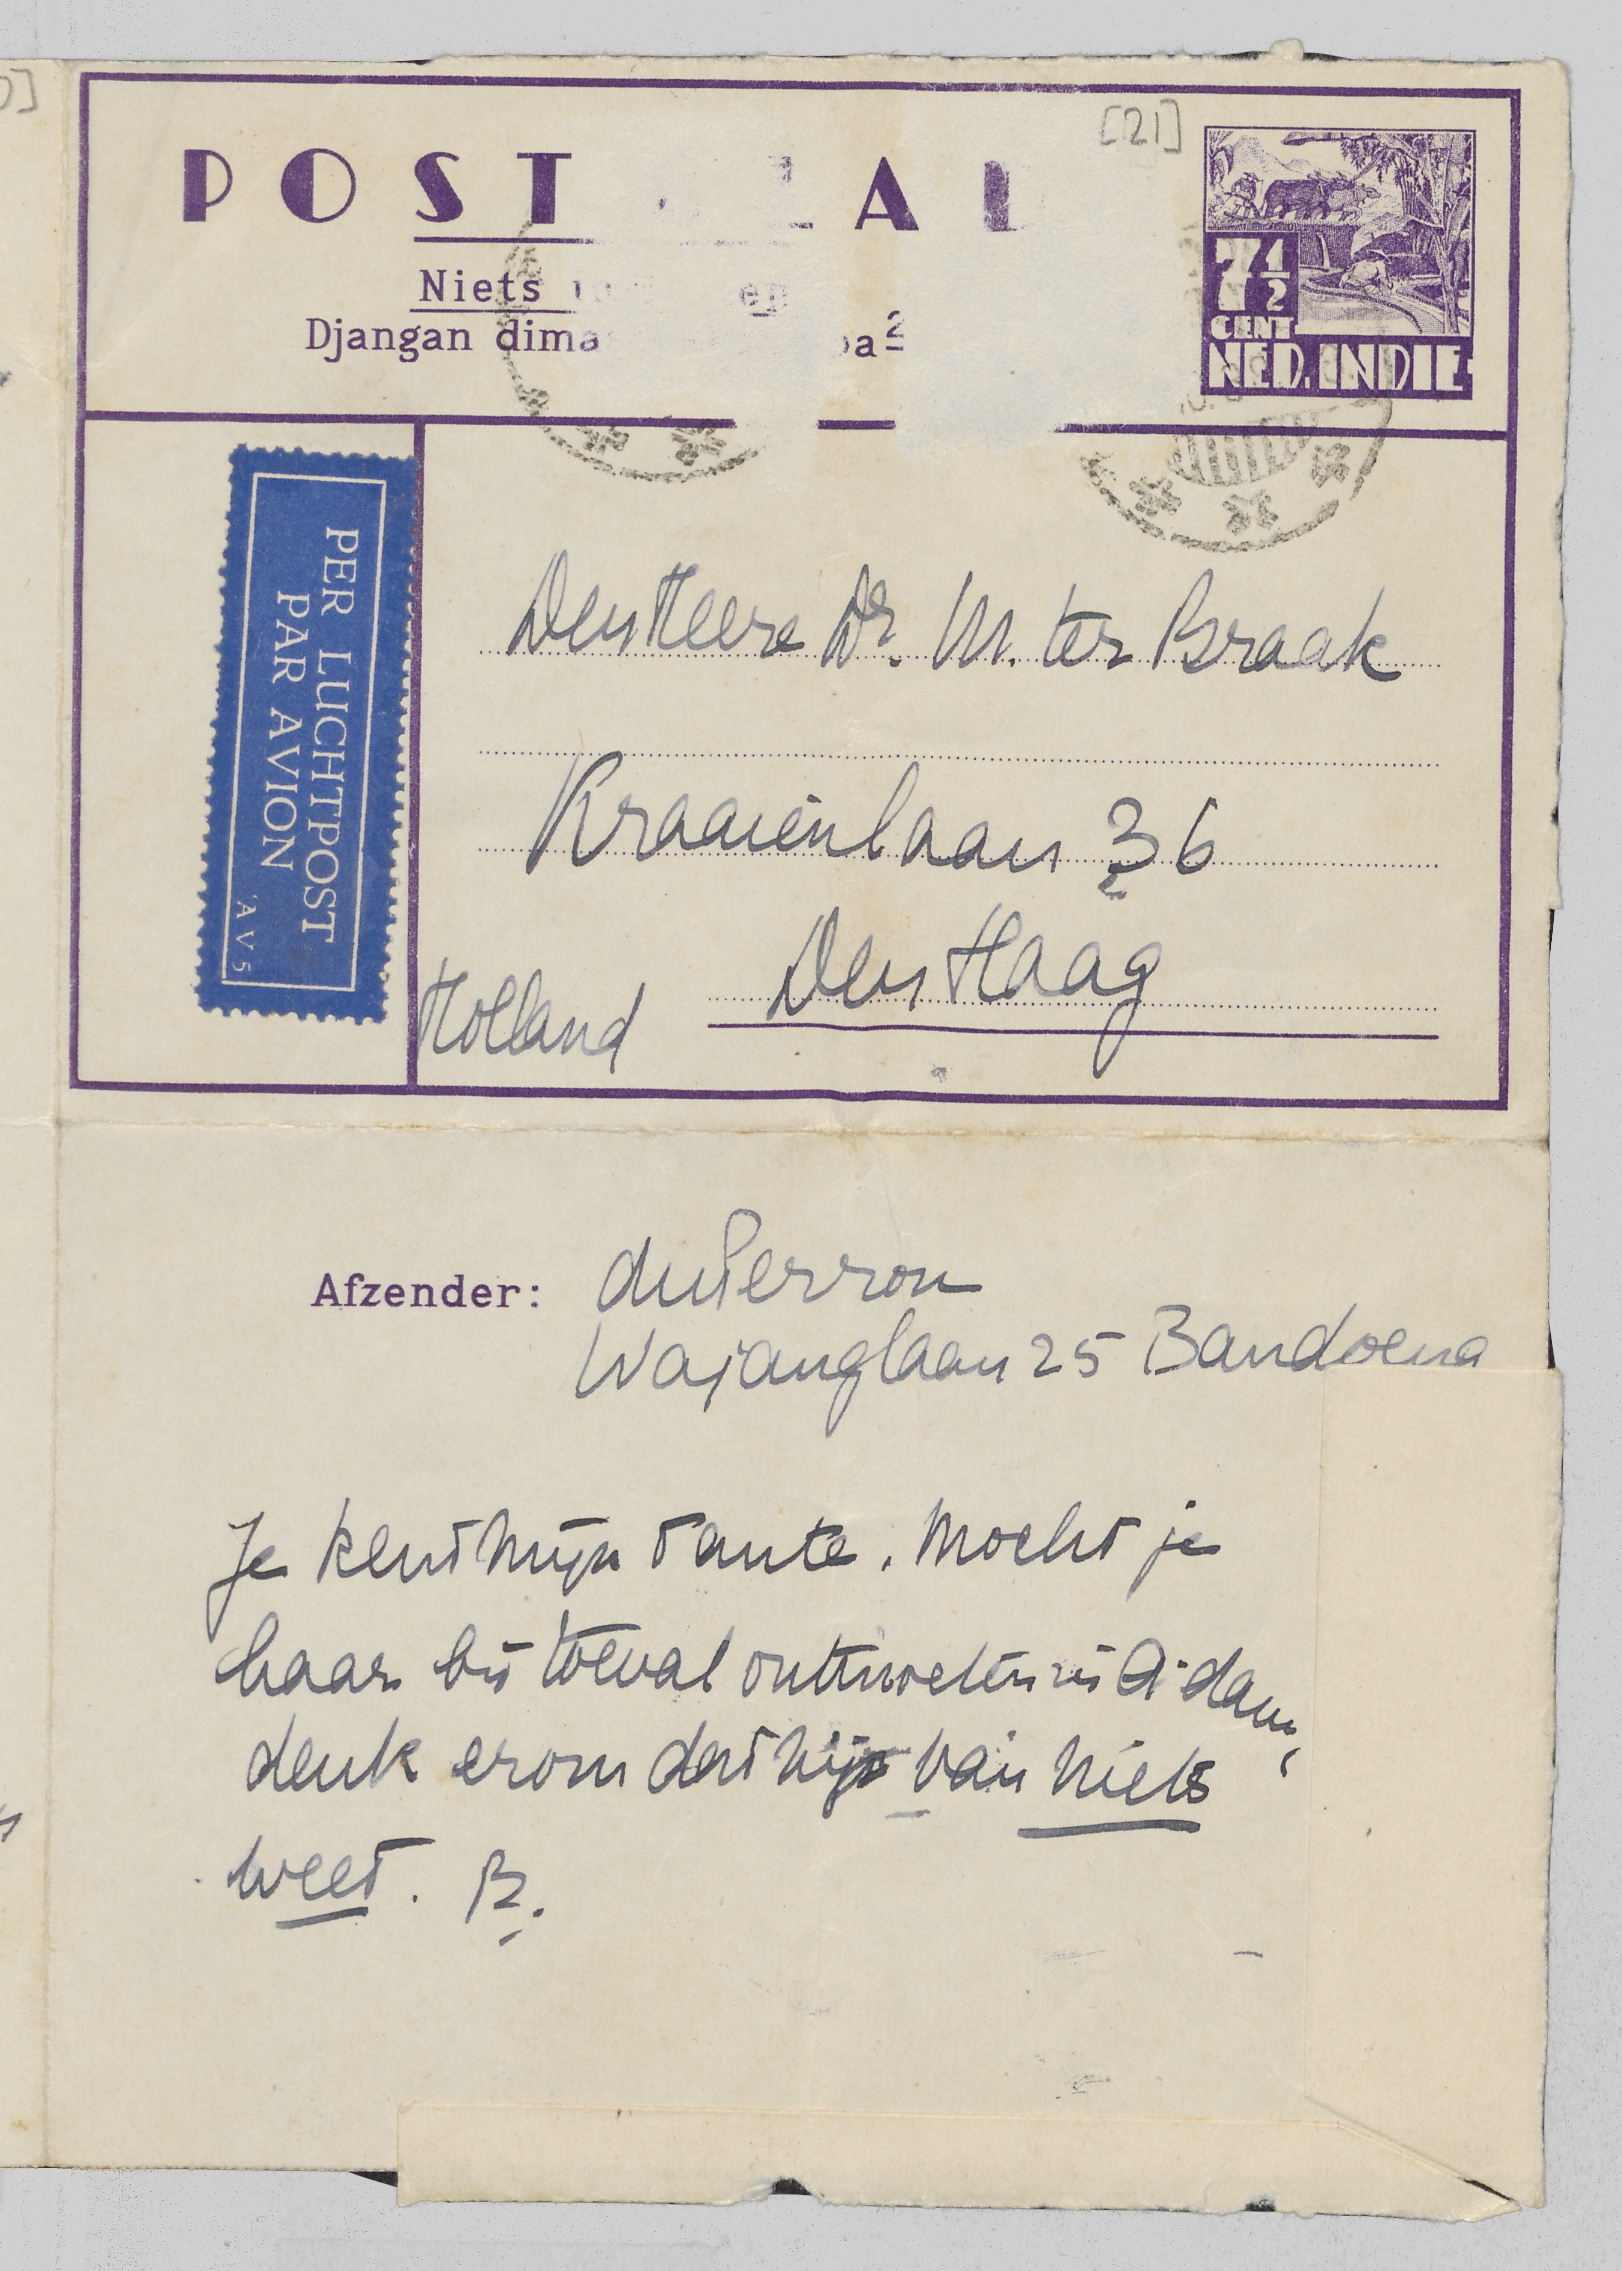 [21]
POST
7 1/2
CENT
NED. INDIE
Niets
Djangan
PER LUCHTPOST
PAR AVION
AV5
Den Heere Dr. M. ter Braak
Kraaienlaan 36
Den Haag
Holland
Afzender: duPerron
Wajanglaan 25 Bandoeng
Je kent mijn tante. Mocht je
haar bij toeval ontmoeten in A'dam,
denk erom dat zij van niets
weet. B.